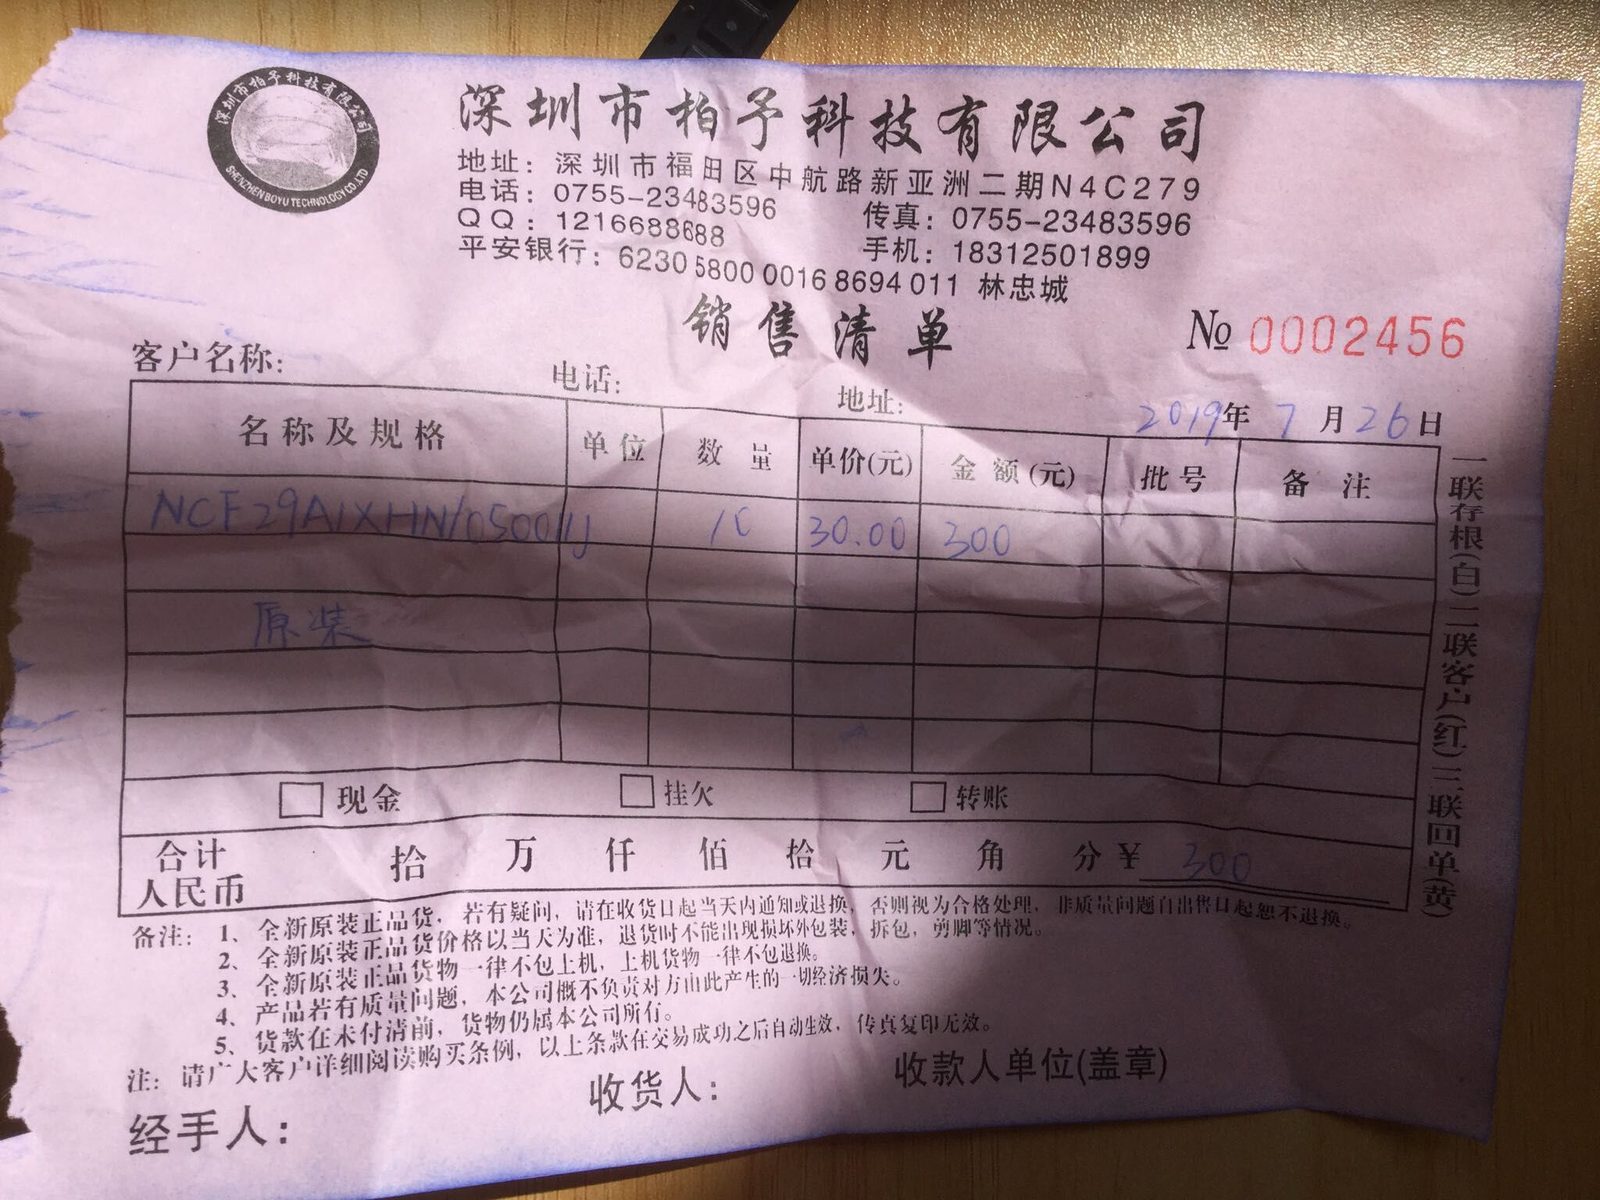 深圳市柏予科技有限公司
SHENZHEN BOYU TECHNOLOGY CO.,LTD
深圳市柏予科技有限公司
地址：深圳市福田区中航路新亚洲二期N4C279
电话：0755-23483596 传真：0755-23483596
QQ：1216688688 手机：18312501899
平安银行：6230 5800 0016 8694 011 林忠城
销售清单 No 0002456
客户名称： 电话： 地址： 2019年 7月26日
名称及规格 单位 数量 单价(元) 金额(元) 批号 备注
NCF29A1XHN/0500IJ 10 30.00 300
原装
现金 挂欠 转账
合计人民币 拾 万 仟 佰 拾 元 角 分 ¥ 300
备注：1、全新原装正品货，若有疑问，请在收货日起当天内通知或退换，否则视为合格处理，非质量问题自出售日起恕不退换。
2、全新原装正品货价格以当天为准，退货时不能出现损坏外包装，拆包，剪脚等情况。
3、全新原装正品货物一律不包上机，上机货物一律不包退换。
4、产品若有质量问题，本公司概不负责对方由此产生的一切经济损失。
5、货款在未付清前，货物仍属本公司所有。
注：请广大客户详细阅读购买条例，以上条款在交易成功之后自动生效，传真复印无效。
经手人： 收货人： 收款人单位(盖章)
一联存根(白)二联客户(红)三联回单(黄)